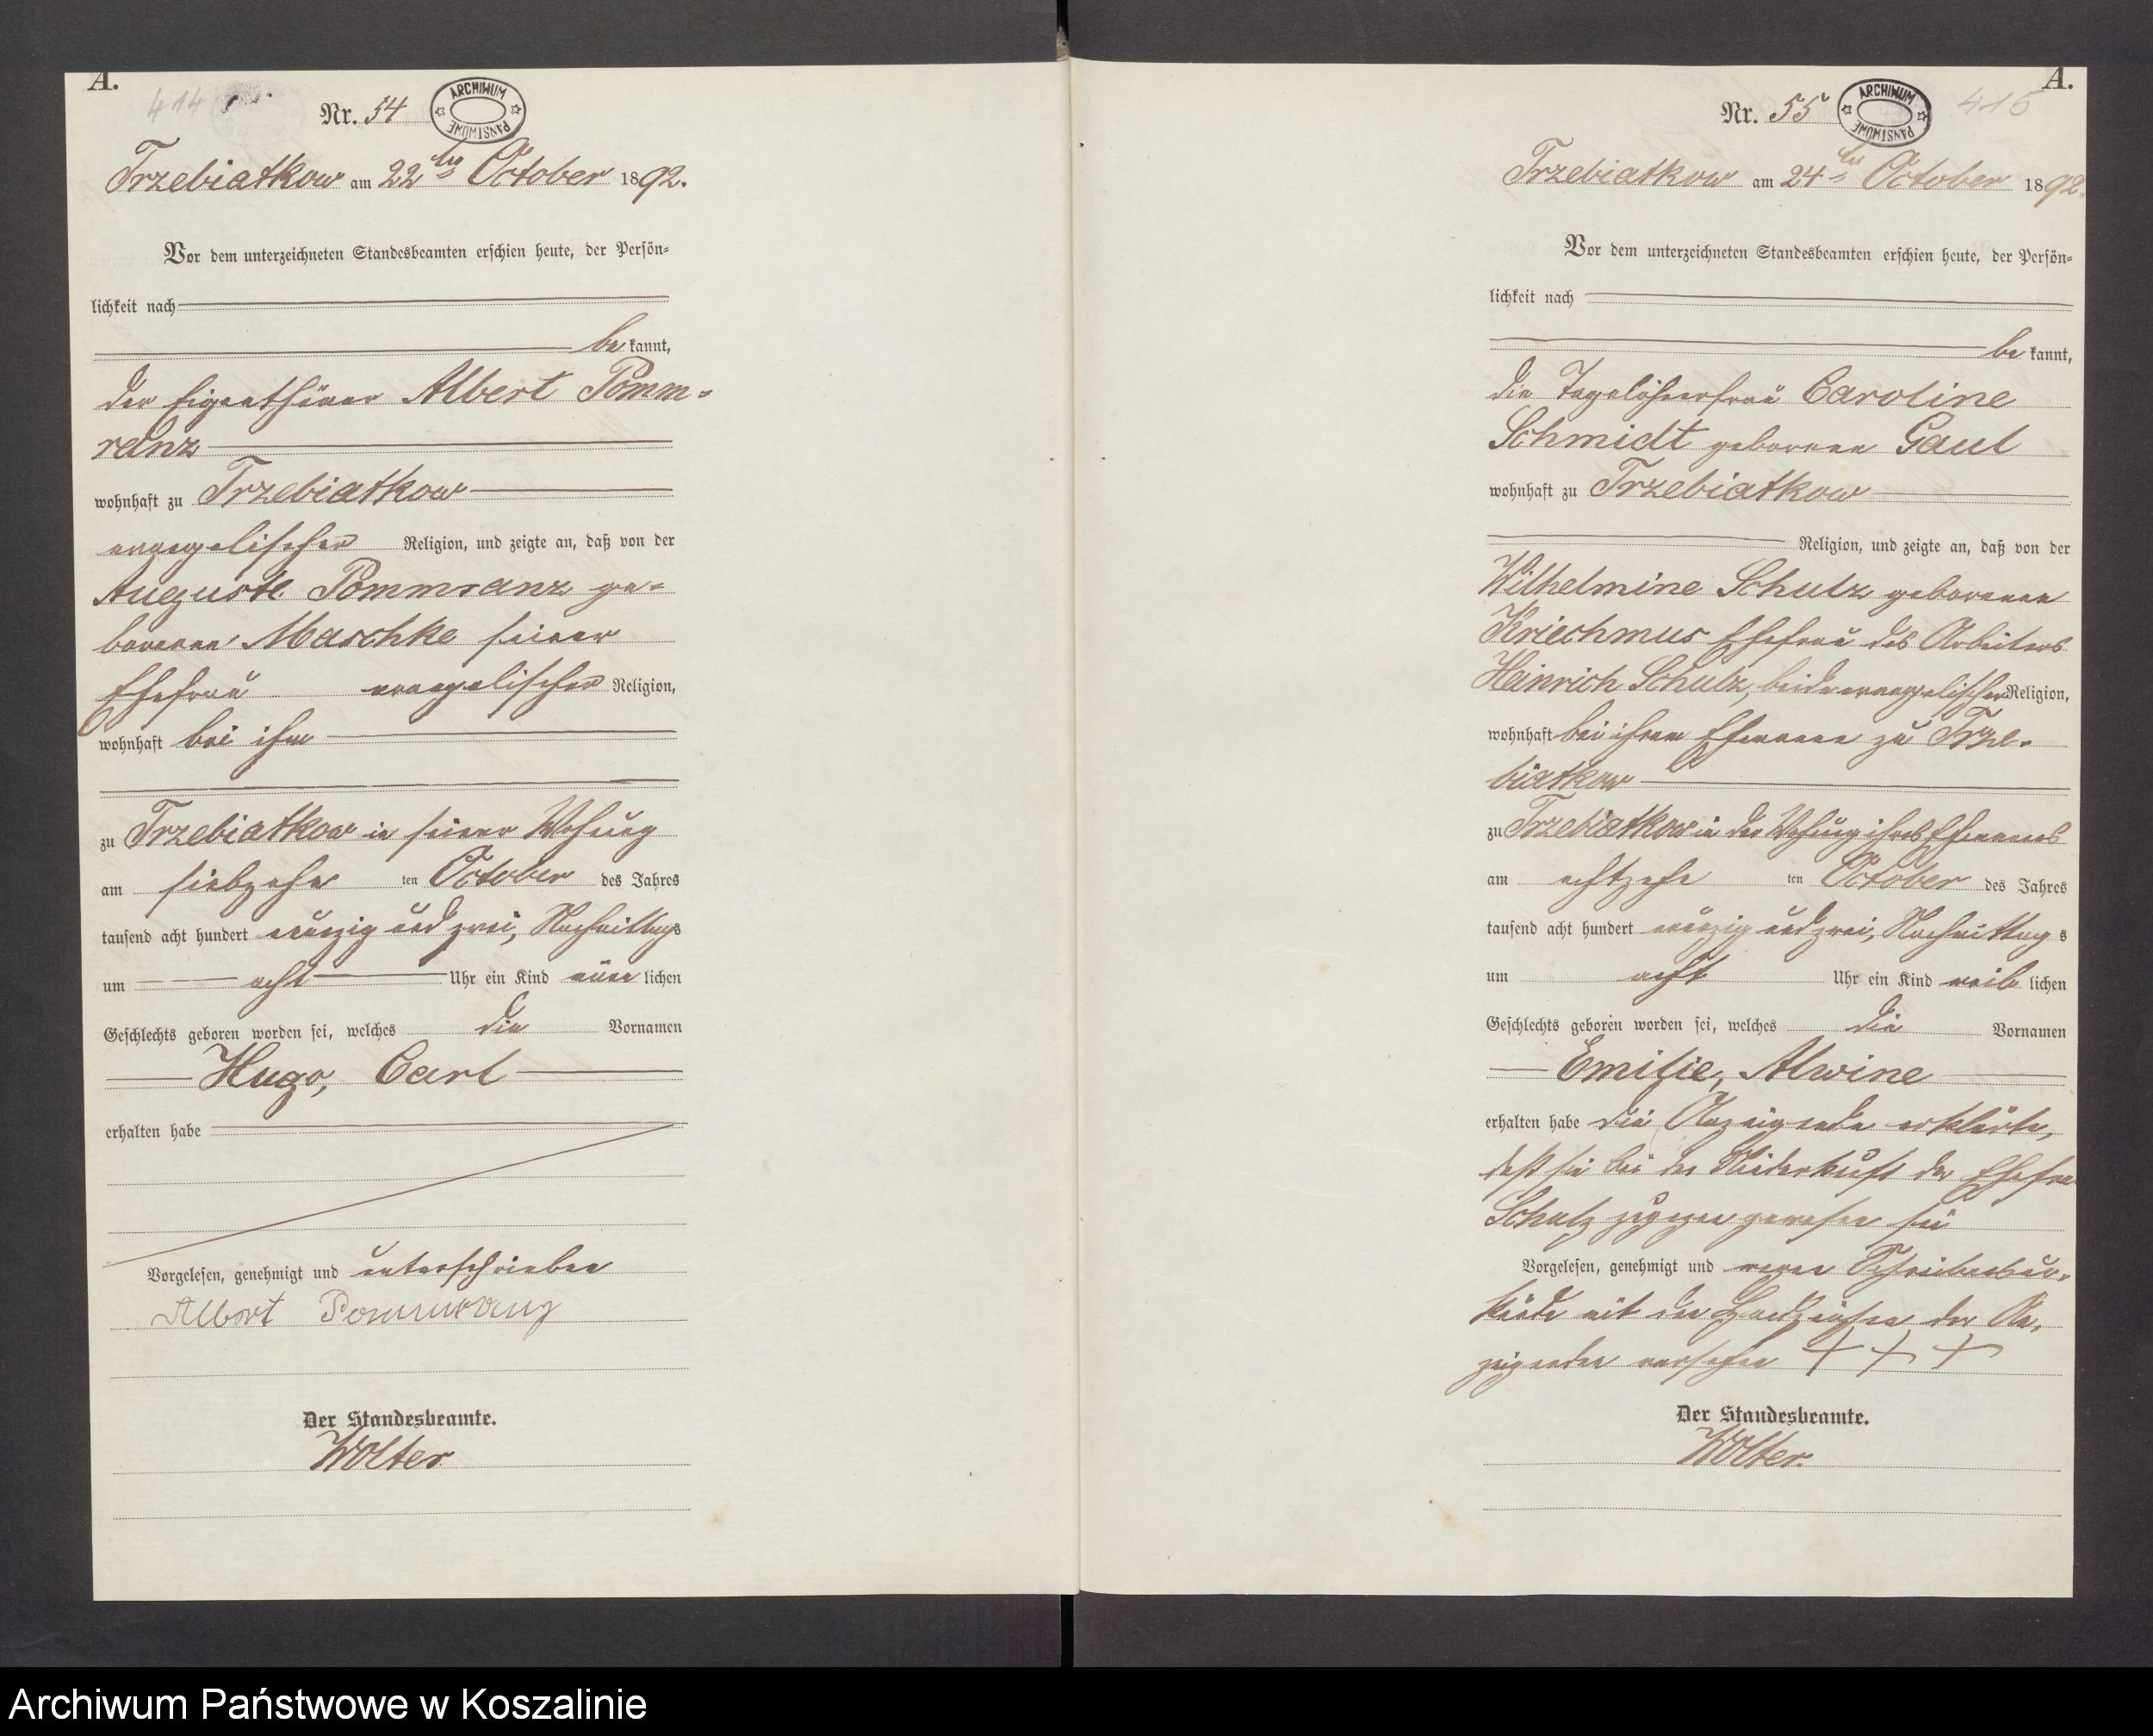 A.
414
Nr. 54
ARCHIWUM PAŃSTWOWE
Trzebiatkow am 22ten October 1892.
Vor dem unterzeichneten Standesbeamten erschien heute, der Persön-
lichkeit nach
be kannt,
der Eigenthümer Albert Pomm-
ranz
wohnhaft zu Trzebiatkow
evangelischer Religion, und zeigte an, daß von der
Auguste Pommranz ge-
borenen Maschke seiner
Ehefrau evangelischer Religion,
wohnhaft bei ihm
zu Trzebiatkow in seiner Wohnung
am siebzehn ten October des Jahres
tausend acht hundert neunzig und zwei, Nachmittags
um acht Uhr ein Kind männ lichen
Geschlechts geboren worden sei, welches die Vornamen
Hugo, Carl
erhalten habe
Vorgelesen, genehmigt und unterschrieben
Albert Pommranz
Der Standesbeamte.
Wolter
A.
415
Nr. 55
ARCHIWUM PAŃSTWOWE
Trzebiatkow am 24ten October 1892.
Vor dem unterzeichneten Standesbeamten erschien heute, der Persön-
lichkeit nach
be kannt,
die Tagelöhnerfrau Caroline
Schmidt geborenen Gaul
wohnhaft zu Trzebiatkow
Religion, und zeigte an, daß von der
Wilhelmine Schulz geborenen
Kriechmus Ehefrau des Arbeiters
Heinrich Schulz, beide evangelischer Religion,
wohnhaft bei ihrem Ehemann zu Trze-
biatkow
zu Trzebiatkow in der Wohnung ihres Ehemanns
am achtzehn ten October des Jahres
tausend acht hundert neunzig und zwei, Nachmittag s
um acht Uhr ein Kind weib lichen
Geschlechts geboren worden sei, welches die Vornamen
Emilie, Alwine
erhalten habe die Anzeigende erklärte,
daß sie bei der Niederkunft der Ehefrau
Schulz zugegen gewesen sei
Vorgelesen, genehmigt und wegen Schreibensun-
kunde mit den Handzeichen der An-
zeigenden versehen + + +
Der Standesbeamte.
Wolter.
Archiwum Państwowe w Koszalinie